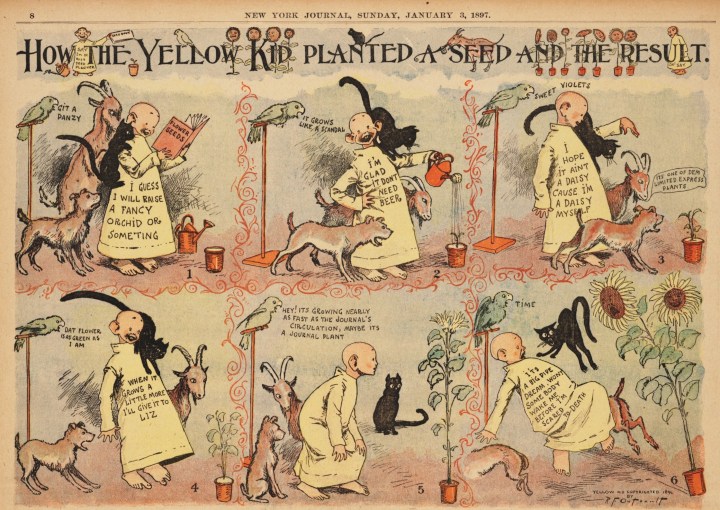 8
NEW YORK JOURNAL, SUNDAY, JANUARY 3, 1897.
HOW THE YELLOW KID PLANTED A SEED AND THE RESULT.
GIT A
DANZY
FLOWER
SEEDS
I GUESS
I WILL RAISE
A FANCY
ORCHID OR
SOMETING
1
IT GROWS
LIKE A SCANDAL
I'M
GLAD
IT DON'T
NEED
BEER
2
SWEET VIOLETS
I
HOPE
IT AIN'T
A DAISY
CAUSE I'M
A DAISY
MYSELF
ITS ONE OF DEM
LIMITED EXPRESS
PLANTS
3
DAT FLOWER
IS AS GREEN AS
I AM
WHEN IT
GROWS A
LITTLE MORE
I'LL GIVE IT TO
LIZ
4
HEY! ITS GROWING NEARLY
AS FAST AS THE JOURNAL'S
CIRCULATION, MAYBE ITS
A JOURNAL PLANT
5
TIME
IT'S
A BIG PIPE
DREAM. WON'T
SOME BODY
WAKE ME
BEFORE I'M
SCARED
TO DEATH
YELLOW KID COPYRIGHTED 1896
BY
R F Outcault
6